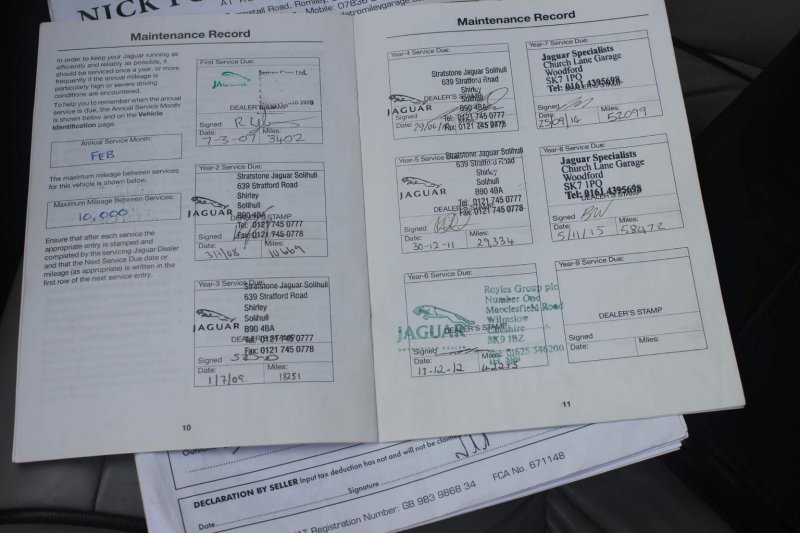 NICK
Romiley,
Mobile: 07836
Maintenance Record
In order to keep your Jaguar running as
efficiently and reliably as possible, it
should be serviced once a year, or more
frequently if the annual mileage is
particularly high or severe driving
conditions are encountered.
To help you remember when the annual
service is due, the Annual Service Month
is shown below and on the Vehicle
Identification page.
Annual Service Month:
FEB
The maximum mileage between services
for this vehicle is shown below.
Maximum Mileage Between Services:
10,000
Ensure that after each service the
appropriate entry is stamped and
completed by the servicing Jaguar Dealer
and that the Next Service Due date or
mileage (as appropriate) is written in the
first row of the next service entry.
First Service Due:
DEALER'S STAMP
Signed
Date: Miles:
7-3-07 3402
Year-2 Service Due:
JAGUAR
Stratstone Jaguar Solihull
639 Stratford Road
Shirley
Solihull
B90 4BA
DEALER'S STAMP
Tel: 0121 745 0777
Fax: 0121 745 0778
Signed
Date: Miles:
10669
Year-3 Service Due:
JAGUAR
Stratstone Jaguar Solihull
639 Stratford Road
Shirley
Solihull
B90 4BA
DEALER'S STAMP
Tel: 0121 745 0777
Fax: 0121 745 0778
Signed
Date: Miles:
1/7/09 18251
10
Maintenance Record
Year-4 Service Due:
JAGUAR
Stratstone Jaguar Solihull
639 Stratford Road
Shirley
Solihull
B90 4BA
DEALER'S STAMP
Tel: 0121 745 0777
Signed
Date: Miles:
Year-5 Service Due:
JAGUAR
Stratstone Jaguar Solihull
639 Stratford Road
Shirley
Solihull
B90 4BA
DEALER'S STAMP
Tel: 0121 745 0777
Fax: 0121 745 0778
Signed
Date: Miles:
30-12-11 29,334
Year-6 Service Due:
JAGUAR
Royles Group plc
Number One
Macclesfield Road
Wilmslow
Cheshire
SK9 1BZ
DEALER'S STAMP
Signed
Date: Miles:
17-12-12
Year-7 Service Due:
Jaguar Specialists
Church Lane Garage
Woodford
SK7 1PQ
Tel: 0161 4395698
DEALER'S STAMP
Signed
Date: Miles:
25/09/14 52099
Year-8 Service Due:
Jaguar Specialists
Church Lane Garage
Woodford
SK7 1PQ
Tel: 0161 4395698
DEALER'S STAMP
Signed
Date: Miles:
5/11/15 58472
Year-9 Service Due:
DEALER'S STAMP
Signed
Date: Miles:
11
DECLARATION BY SELLER Input tax deduction has not and will not be claimed
Signature
Date
VAT Registration Number: GB 983 9868 34 FCA No. 671148